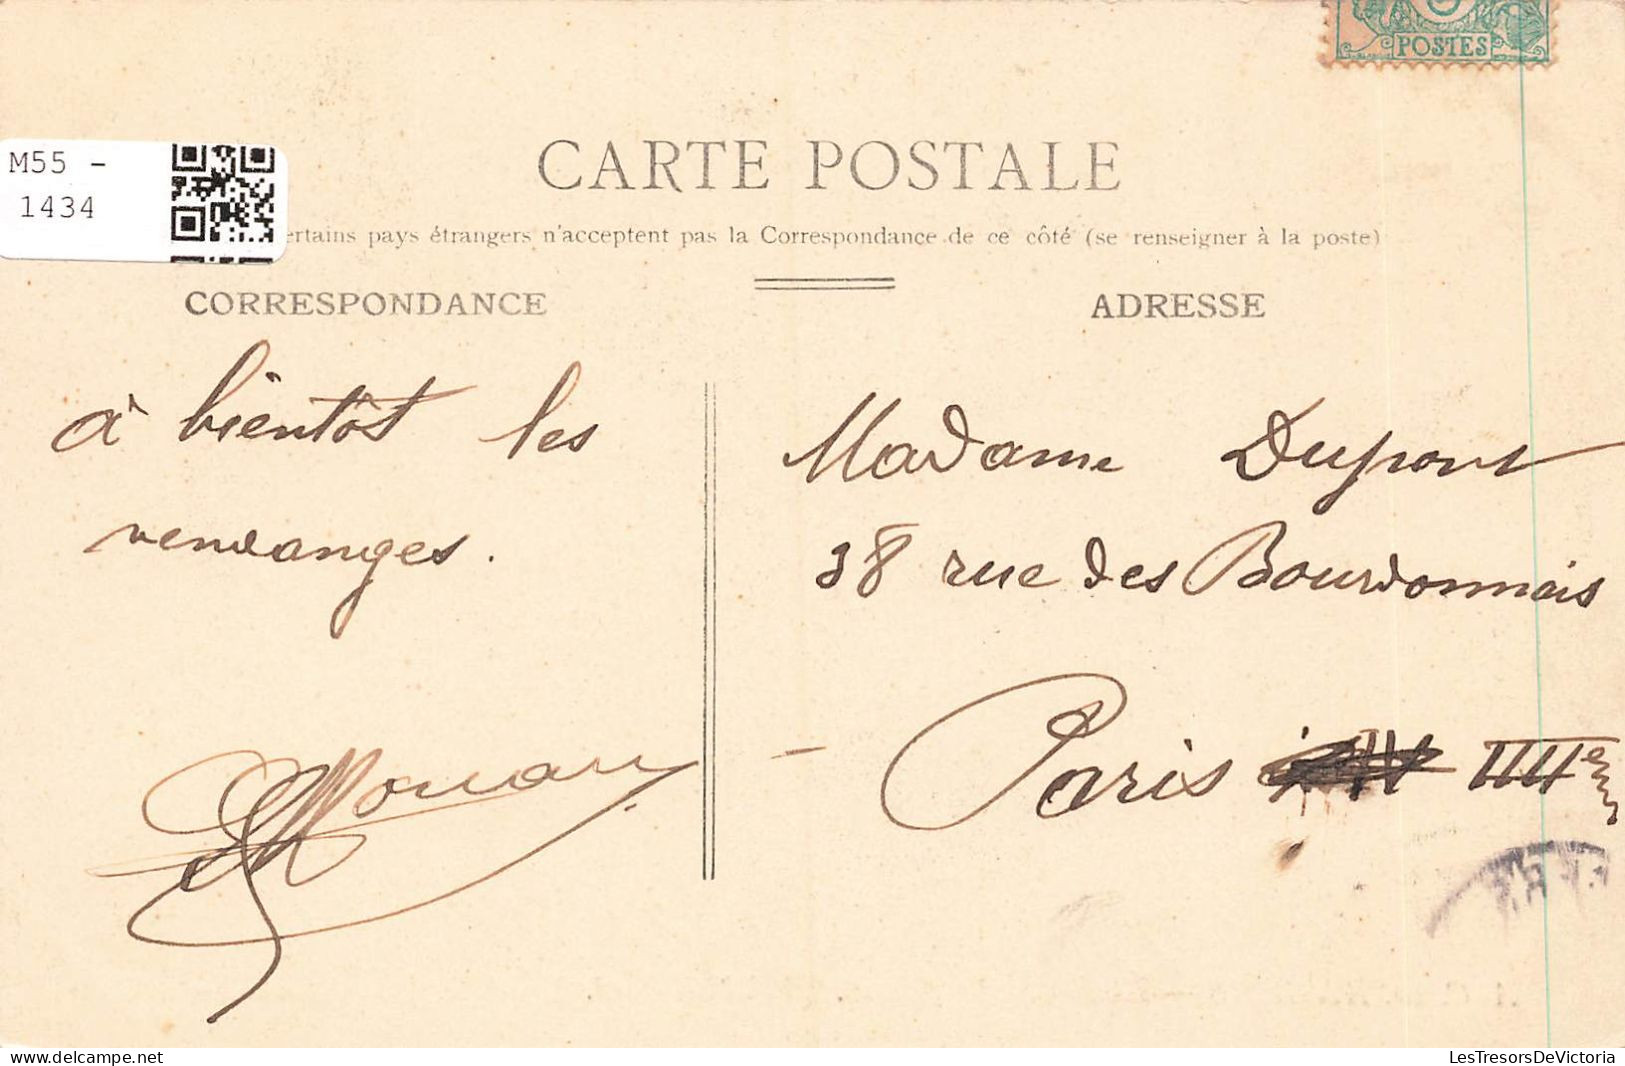 POSTES
M55 -
1434
CARTE POSTALE
ertains pays étrangers n'acceptent pas la Correspondance de ce côté (se renseigner à la poste)
CORRESPONDANCE
ADRESSE
à bientôt les
vendanges.
Madame Dupont
38 rue des Bourdonnais
Paris IIIIe
delcampe.net
LesTresorsDeVictoria